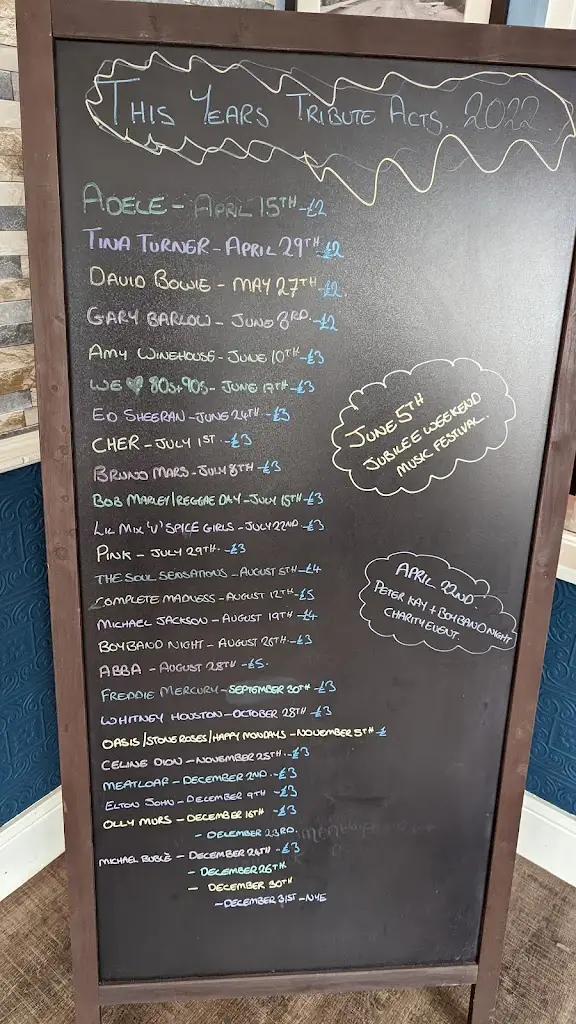 THIS YEARS TRIBUTE ACTS. 2022.
ADELE - APRIL 15TH - £2
TINA TURNER - APRIL 29TH £2
DAVID BOWIE - MAY 27TH - £2.
GARY BARLOW - JUNE 3RD. - £2
AMY WINEHOUSE - JUNE 10TH - £3
WE ♥ 80s+90s - JUNE 17TH - £3
ED SHEERAN - JUNE 24TH - £3
CHER - JULY 1ST - £3
BRUNO MARS - JULY 8TH - £3
BOB MARLEY/REGGAE DAY - JULY 15TH - £3
LIL MIX 'V' SPICE GIRLS - JULY 22ND - £3
PINK - JULY 29TH - £3
THE SOUL SENSATIONS - AUGUST 5TH - £4
COMPLETE MADNESS - AUGUST 12TH - £5
MICHAEL JACKSON - AUGUST 19TH - £4
BOYBAND NIGHT - AUGUST 26TH - £3
ABBA - AUGUST 28TH - £5.
FREDDIE MERCURY - SEPTEMBER 30TH - £3
WHITNEY HOUSTON - OCTOBER 28TH - £3
OASIS/STONE ROSES/HAPPY MONDAYS - NOVEMBER 5TH - £
CELINE DION - NOVEMBER 25TH - £3
MEATLOAF - DECEMBER 2ND. - £3
ELTON JOHN - DECEMBER 9TH - £3
OLLY MURS - DECEMBER 16TH - £3
- DECEMBER 23RD.
MICHAEL BUBLÈ - DECEMBER 24TH - £3
- DECEMBER 26TH
- DECEMBER 30TH
- DECEMBER 31ST - NYE
JUNE 5TH
JUBILEE WEEKEND
MUSIC FESTIVAL.
APRIL 22ND.
PETER KAY + BOYBAND NIGHT
CHARITY EVENT.